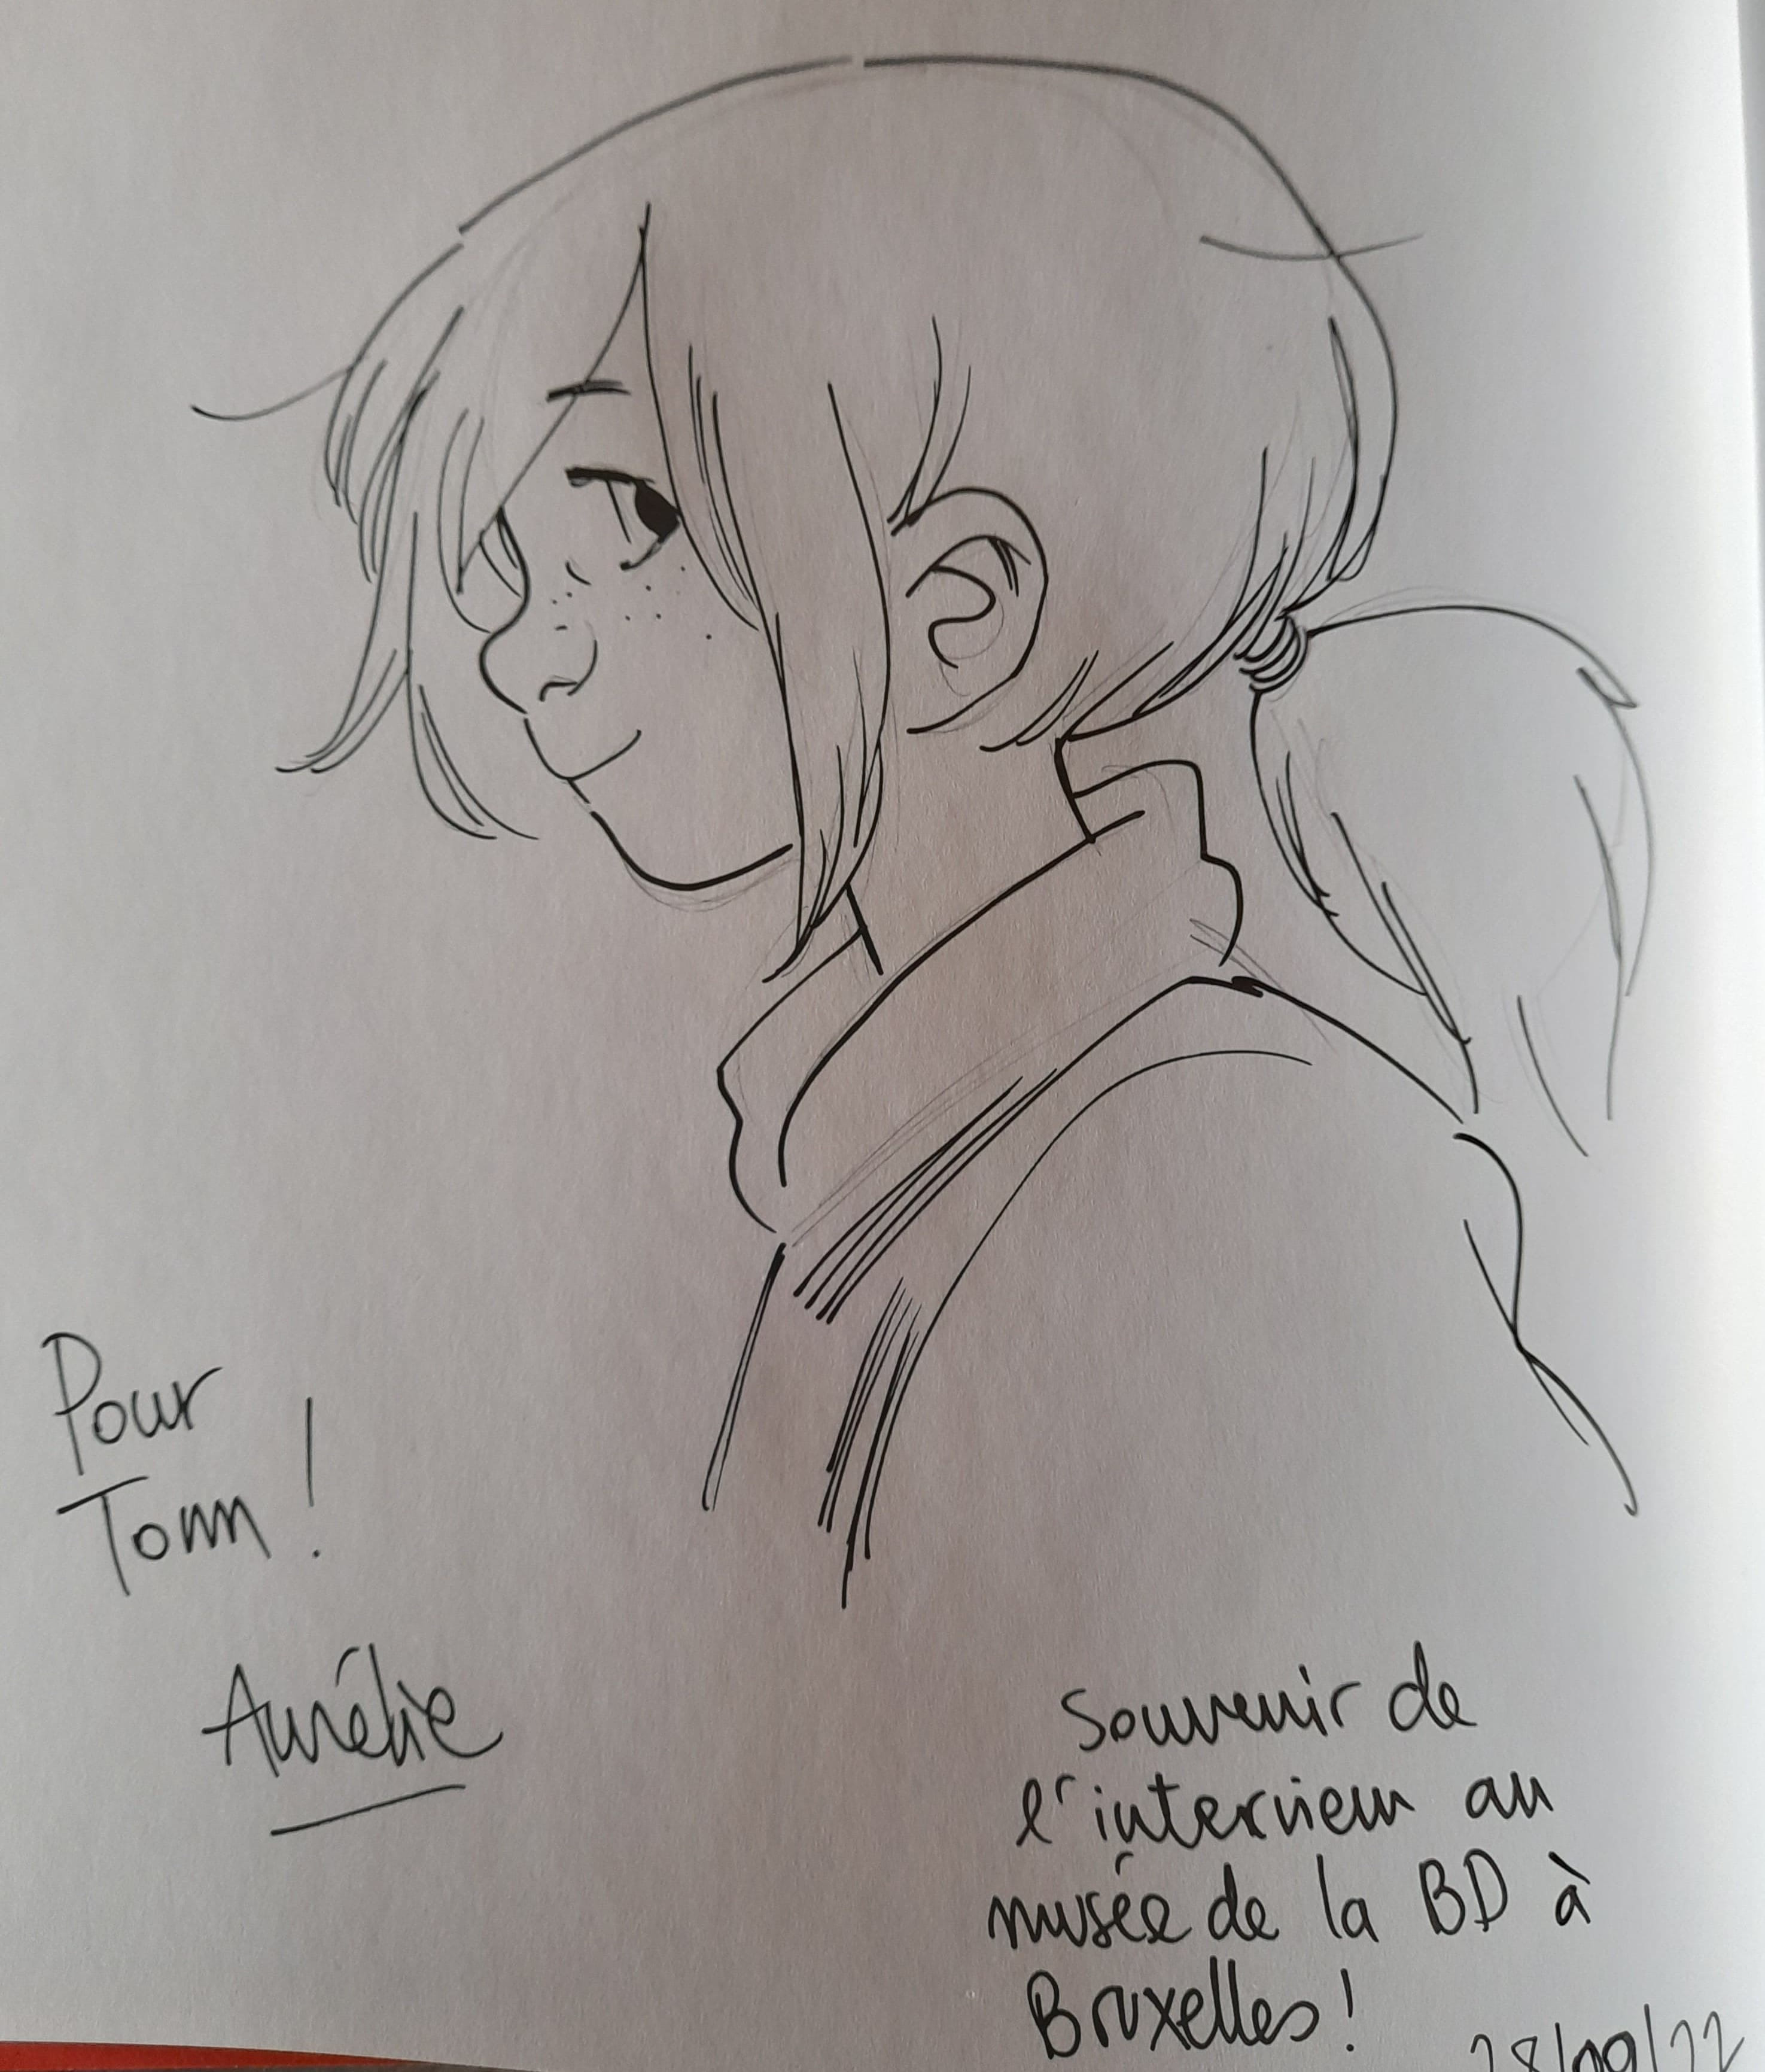 Pour
Tom !
Aurélie
Souvenir de
l'interview au
musée de la BD à
Bruxelles !
28/09/22